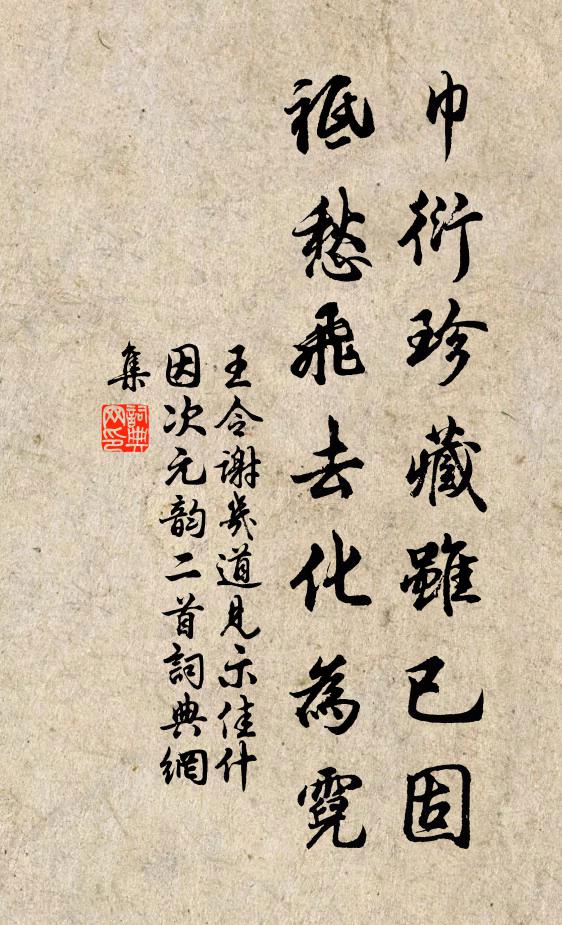 巾衍珍藏雖已固
祗愁飛去化為霓
王令謝幾道見示佳什
因次元韵二首詞典網
集
詞典網印